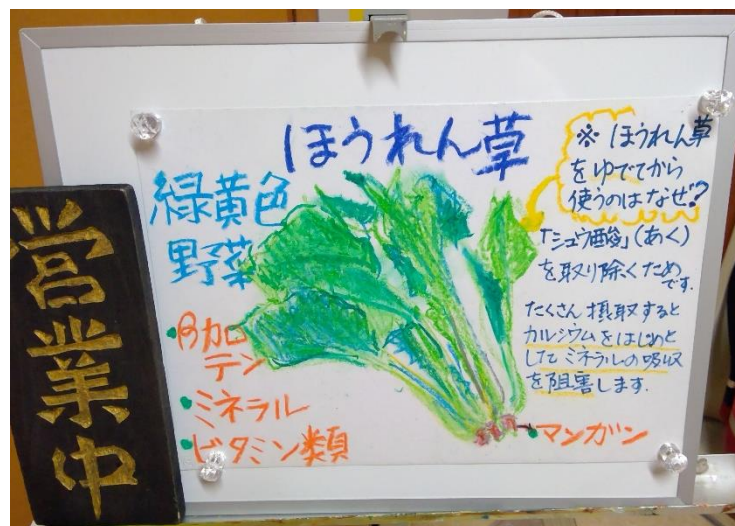 ほうれん草
緑黄色
野菜
・βカロ
テン
・ミネラル
・ビタミン類
※ ほうれん草
をゆでてから
使うのはなぜ?
「シュウ酸」(あく)
を取り除くため
です.
たくさん摂取すると
カルシウムをはじめと
してミネラルの吸収
を阻害します.
マンガン
営業中